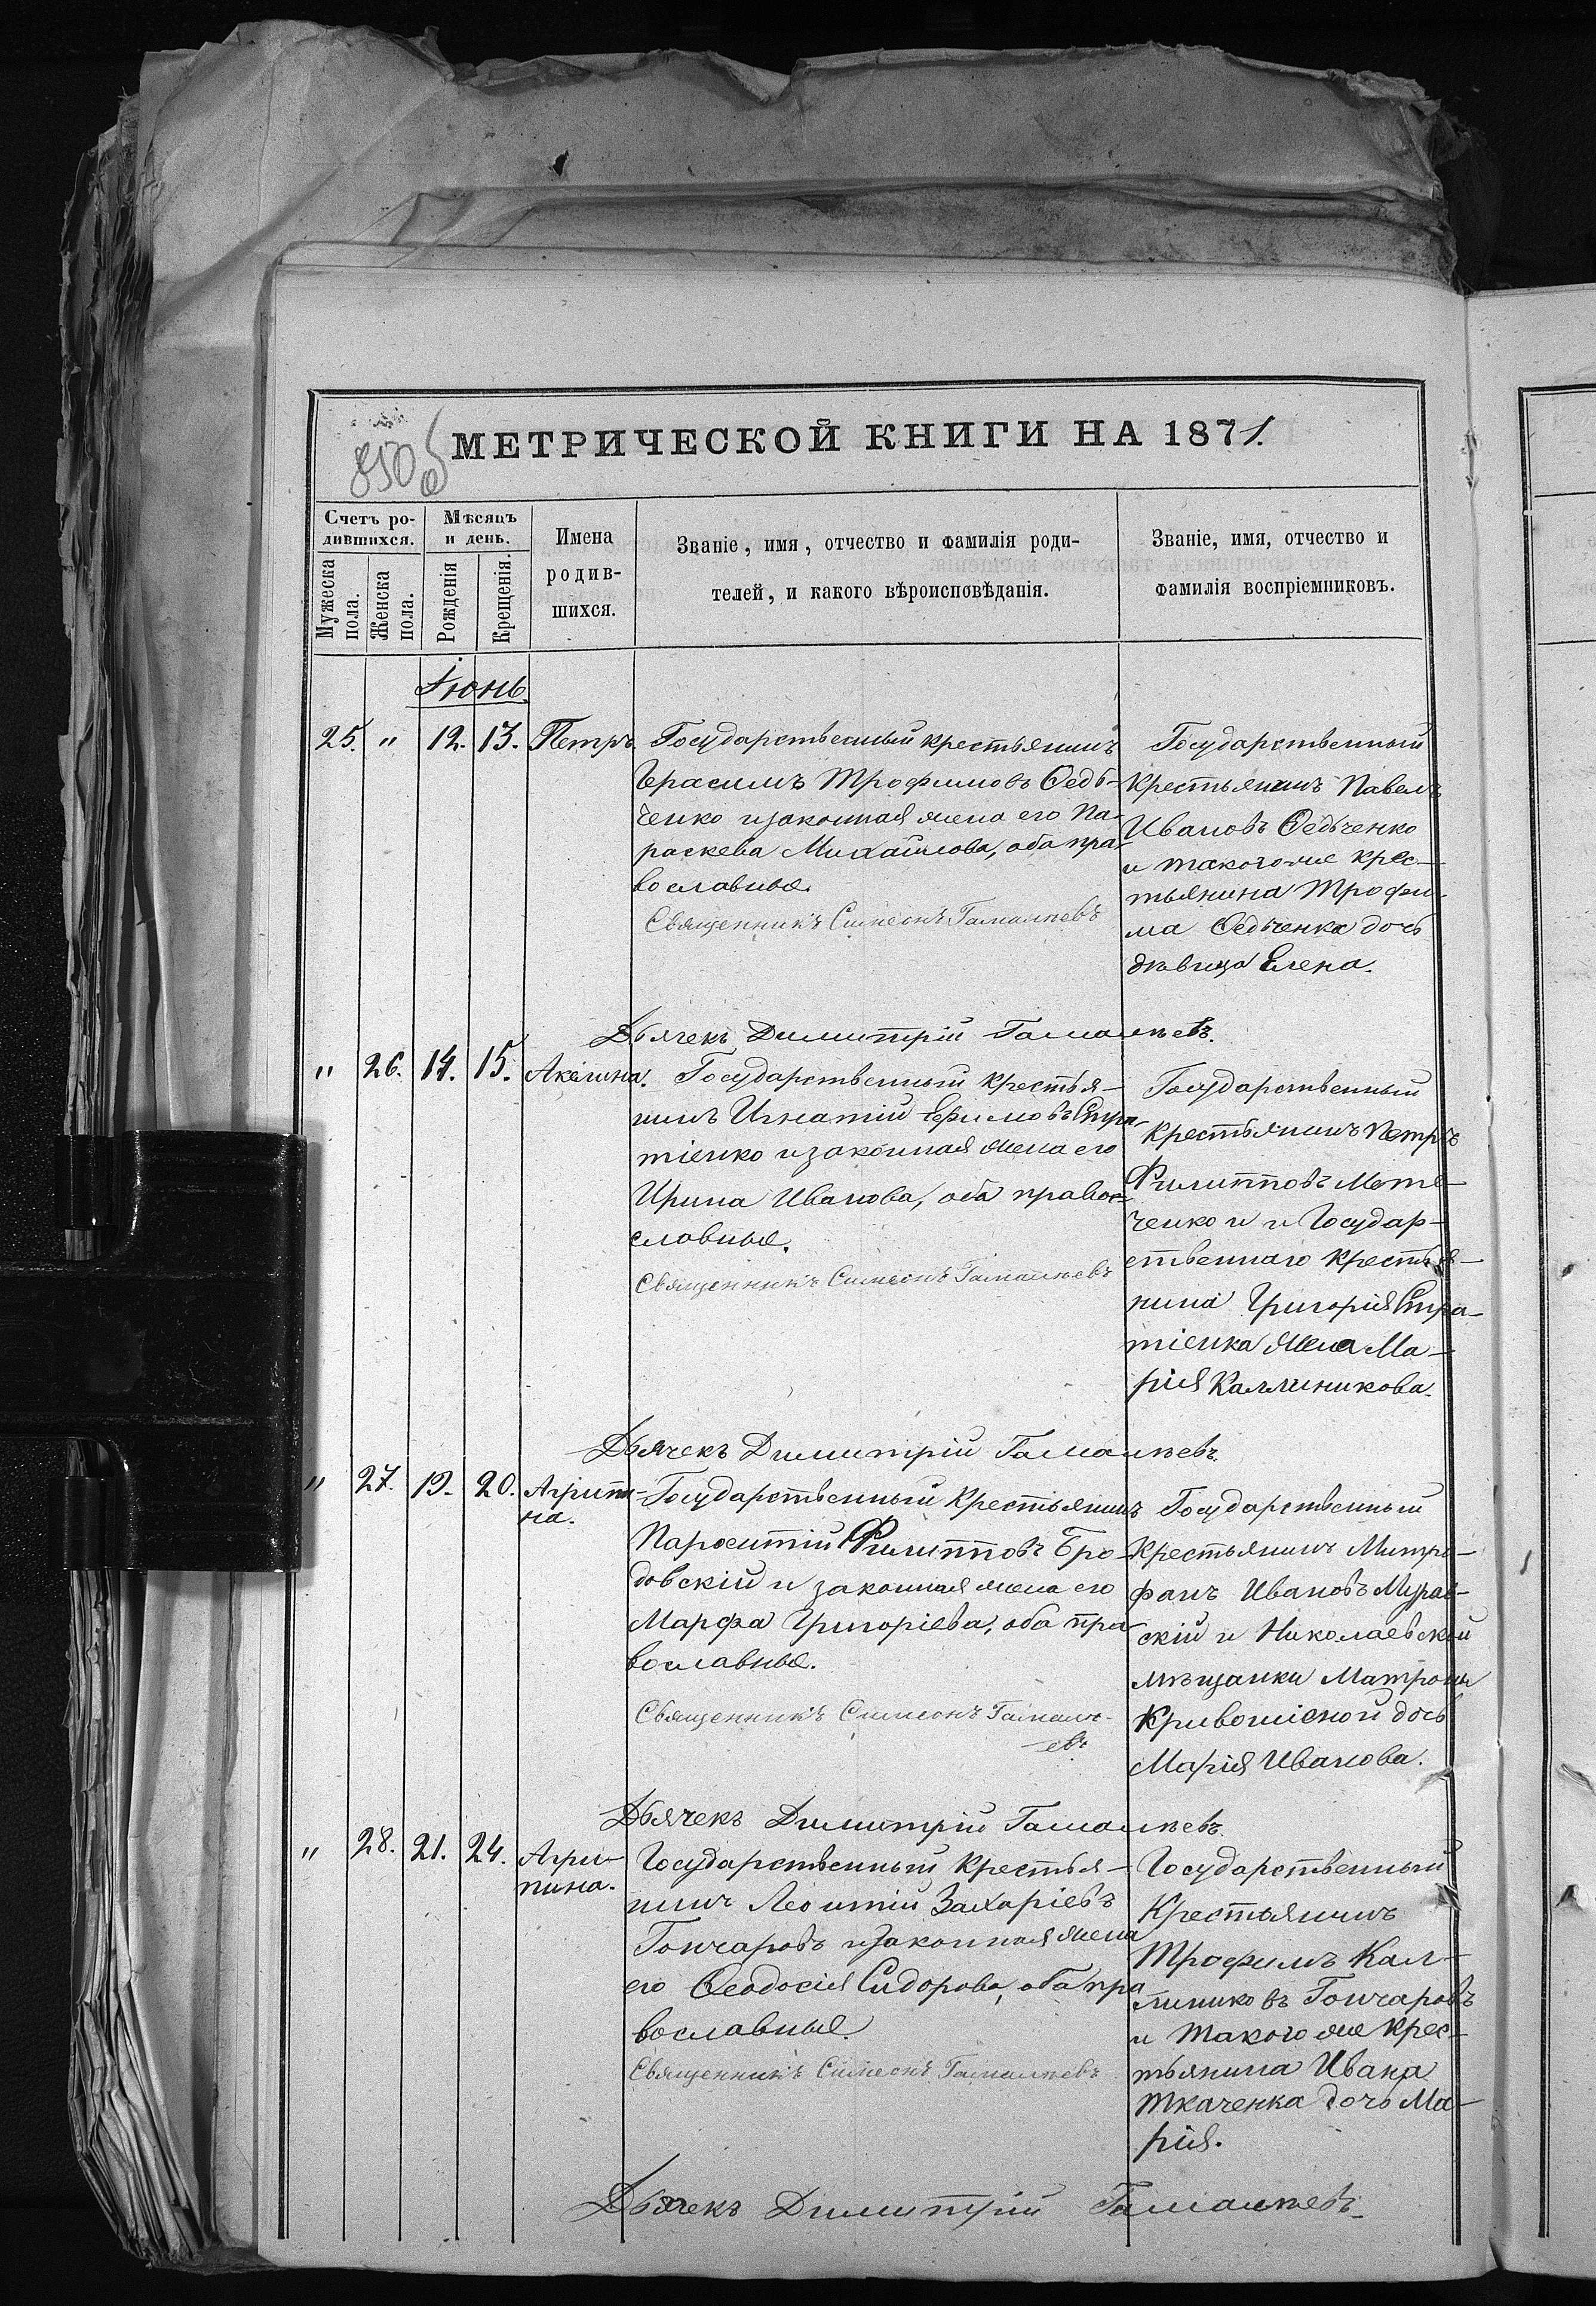 850 об
МЕТРИЧЕСКОЙ КНИГИ НА 1871.
Счетъ ро-
дившихся.
Мѣсяцъ
и день.
Мужеска
пола.
Женска
пола.
Рожденія
Крещенія.
Имена
родив-
шихся.
Званіе, имя, отчество и фамилія роди-
телей, и какого вѣроисповѣданія.
Званіе, имя, отчество и
фамилія воспріемниковъ.
Іюнь.
25. " 12. 13. Петръ.
Государственный крестьянинъ
Герасимъ Трофимовъ Ѳедь-
ченко и законная жена его Па-
раскева Михайлова, оба пра-
вославные.
Священникъ Симеонъ Гамалѣевъ
Государственный
Крестьянинъ Павелъ
Ивановъ Ѳедьченко
и такого же крес-
тьянина Трофи-
ма Ѳедьченка дочь
дѣвица Елена.
Дьячекъ Димитрій Гамалѣевъ.
" 26. 14. 15. Акелина.
Государственный крестья-
нинъ Игнатій Ефимовъ Стра-
тіенко и законная жена его
Ирина Иванова, оба правос-
славные.
Священникъ Симеонъ Гамалѣевъ
Государственный
крестьянинъ Петръ
Филипповъ
ченко и и Государ-
ственнаго крестья-
нина Григорія Стра-
тіенка жена Ма-
рія Каллиникова.
Дьячекъ Димитрій Гамалѣевъ.
" 27. 19. 20. Агрипи-
на.
Государственный Крестьянинъ
Филипповъ Бро-
довскій и законная жена его
Марфа Григоріева, оба пра-
вославные.
Священникъ Симеонъ Гамалѣ-
евъ
Государственный
Крестьянинъ Митро-
фанъ Ивановъ Мурав-
скій и Николаевской
мѣщанки Матроны
дочь
Марія Иванова.
Дьячекъ Димитрій Гамалѣевъ.
" 28. 21. 24. Агри-
пина.
Государственный Крестья-
нинъ Леонтій Захаріевъ
Гончаровъ и законная жена
его Ѳеодосія Сидорова, оба пра
вославные.
Священникъ Симеонъ Гамалѣевъ
Государственный
Крестьянинъ
Трофимъ Кал-
линиковъ Гончаровъ
и такого же крес-
тьянина Ивана
Ткаченка дочь Ма-
рія.
Дьячекъ Димитрій Гамалѣевъ.